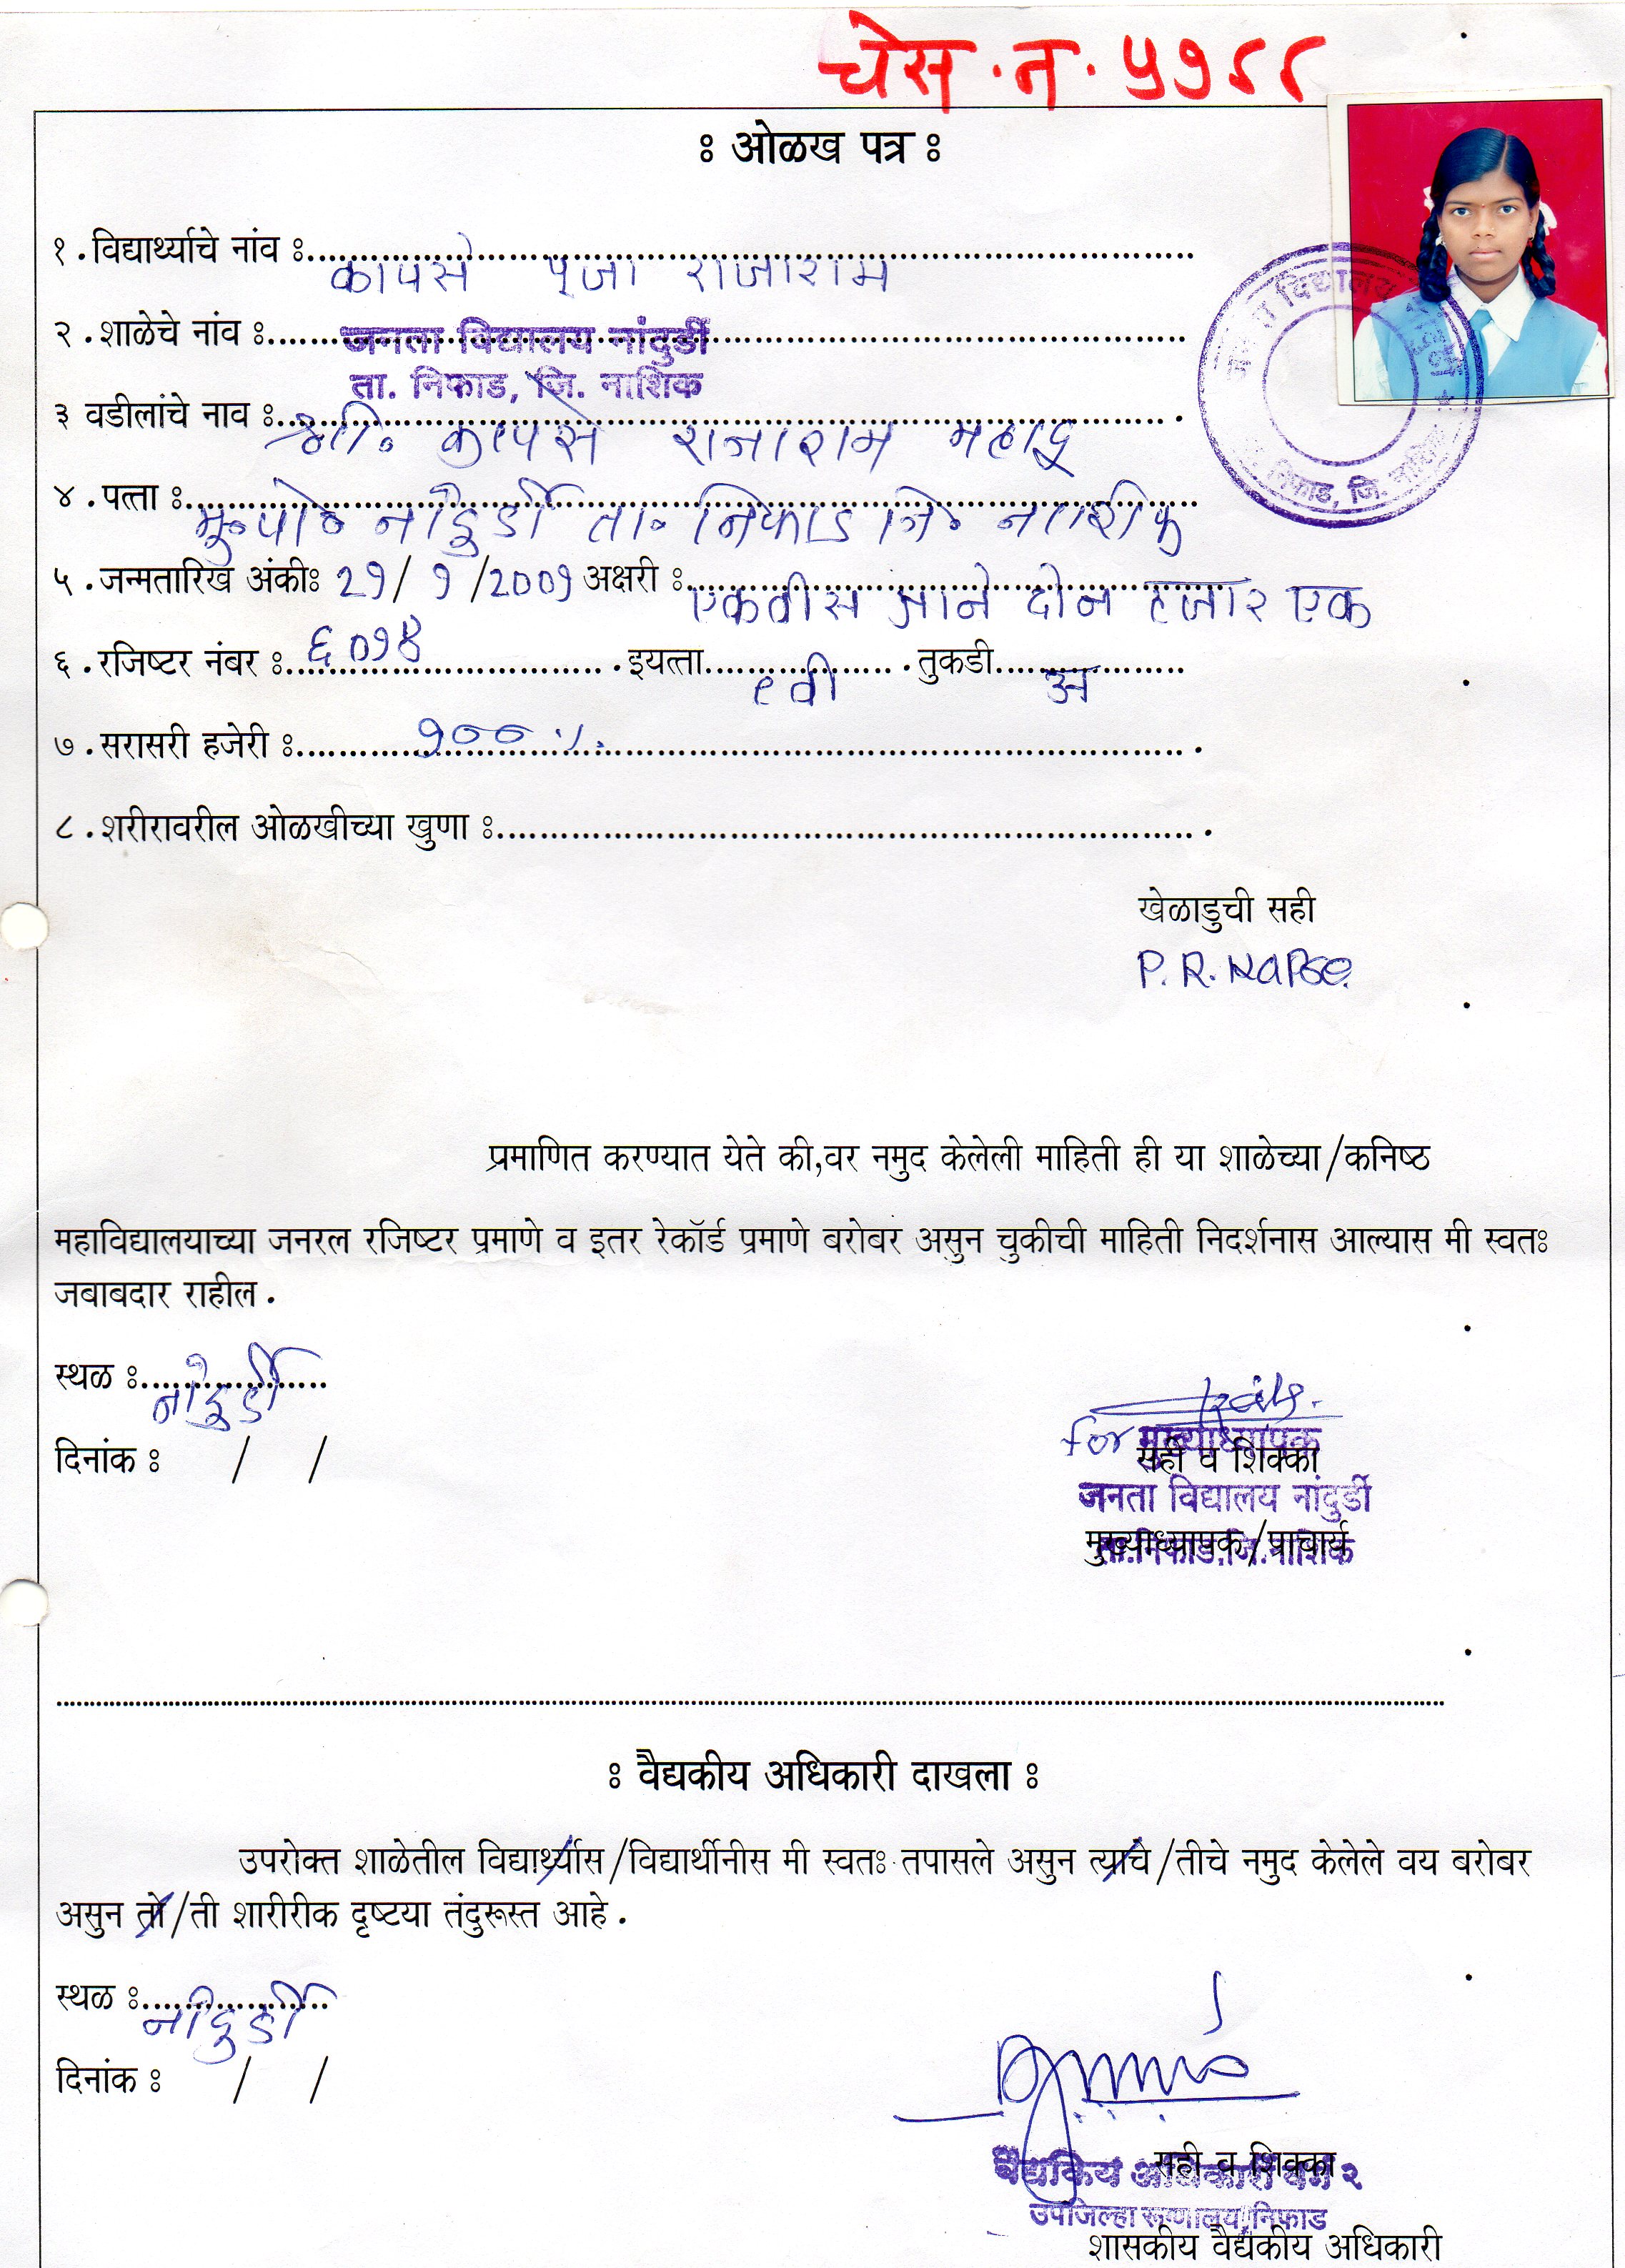 चेस.न.५७८८
ः ओळख पत्र ः
१.विद्यार्थ्याचे नांव ः कापसे पूजा राजाराम
२.शाळेचे नांव ः जनता विद्यालय नांदुर्डी
ता. निफाड, जि. नाशिक
३ वडीलांचे नाव ः श्री. कापसे राजाराम महादू
४.पत्ता ः मु.पो. नांदुर्डी ता. निफाड जि. नाशिक
५.जन्मतारिख अंकीः 21/ 1 /2001 अक्षरी ः एकवीस जाने दोन हजार एक
६.रजिष्टर नंबर ः ६०१४ .इयत्ता ९ वी .तुकडी अ
७.सरासरी हजेरी ः १००%.
८.शरीरावरील ओळखीच्या खुणा ः
खेळाडुची सही
P. R. Kapse.
प्रमाणित करण्यात येते की,वर नमुद केलेली माहिती ही या शाळेच्या/कनिष्ठ
महाविद्यालयाच्या जनरल रजिष्टर प्रमाणे व इतर रेकॉर्ड प्रमाणे बरोबर असुन चुकीची माहिती निदर्शनास आल्यास मी स्वतः
जबाबदार राहील.
स्थळ ः नांदुर्डी
दिनांक ः / /
For मुख्याध्यापक
सही व शिक्का
जनता विद्यालय नांदुर्डी
मुख्याध्यापक/प्राचार्य
ता.निफाड.जि.नाशिक
ः वैद्यकीय अधिकारी दाखला ः
उपरोक्त शाळेतील विद्यार्थ्यास/विद्यार्थीनीस मी स्वतः तपासले असुन त्याचे/तीचे नमुद केलेले वय बरोबर
असुन तो/ती शारीरीक दृष्टया तंदुरूस्त आहे.
स्थळ ः नांदुर्डी
दिनांक ः / /
सही व शिक्का
वैद्यकिय अधिकारी वर्ग २
उपजिल्हा रूग्णालय,निफाड
शासकीय वैद्यकीय अधिकारी